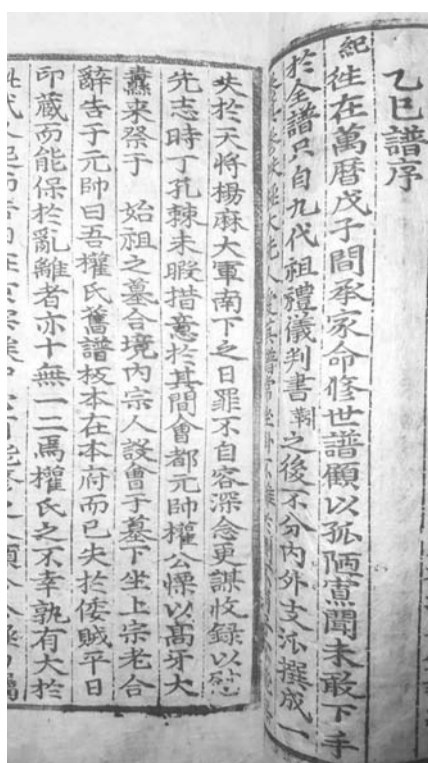 乙巳譜序
紀徃在萬曆戊子間承家命修世譜顧以孤陋寡聞未敢下手
於全譜只自九代祖禮儀判書靷之後不分內外支派撰成一
失於天將楊麻大軍南下之日罪不自容深念更謀收錄以慰
先志時丁孔棘未暇措意於其間會都元帥權公慄以高牙大
纛来祭于 始祖之墓合境內宗人設會于墓下坐上宗老合
辭告于元帥曰吾權氏舊譜板本在本府而已失於倭賊平日
印藏而能保於亂離者亦十無一二焉權氏之不幸孰有大於